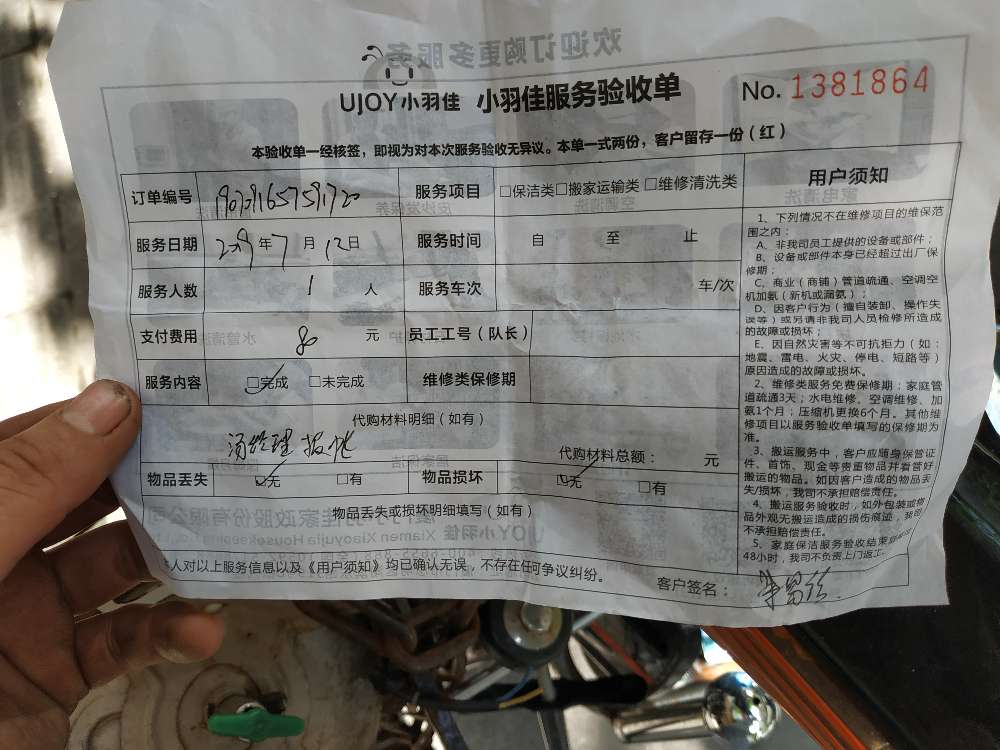 欢迎订购更多服务
UJOY小羽佳 小羽佳服务验收单
No. 1381864
本验收单一经核签，即视为对本次服务验收无异议。本单一式两份，客户留存一份（红）
订单编号 服务项目 □保洁类□搬家运输类□维修清洗类
服务日期 2019年7月12日 服务时间 自 至 止
服务人数 1 人 服务车次 车/次
支付费用 80 元 员工工号（队长）
服务内容 □完成 □未完成 维修类保修期
代购材料明细（如有）
汤经理报帐
代购材料总额： 元
物品丢失 □无 □有 物品损坏 □无 □有
物品丢失或损坏明细填写（如有）
人对以上服务信息以及《用户须知》均已确认无误，不存在任何争议纠纷。
客户签名：
用户须知
1、下列情况不在维修项目的维保范
围之内：
A、非我司员工提供的设备或部件；
B、设备或部件本身已经超过出厂保
修期；
C、商业（商铺）管道疏通、空调空
机加氨（新机或漏氨）；
D、因客户行为（擅自装卸、操作失
误等）或另请非我司人员检修所造成
的故障或损坏；
E、因自然灾害等不可抗拒力（如：
地震、雷电、火灾、停电、短路等）
原因造成的故障或损坏。
2、维修类服务免费保修期：家庭管
道疏通3天；水电维修、空调维修、加
氨1个月；压缩机更换6个月。其他维
修项目以服务验收单填写的保修期为
准。
3、搬运服务中，客户应随身保管证
件、首饰、现金等贵重物品并看管好
搬运的物品。如因客户造成的物品丢
失/损坏，我司不承担赔偿责任。
4、搬运服务验收时，如外包装或物
品外观无搬运造成的损伤痕迹，我司
不承担赔偿责任。
5、家庭保洁服务验收结束
48小时，我司不负责上门返工。